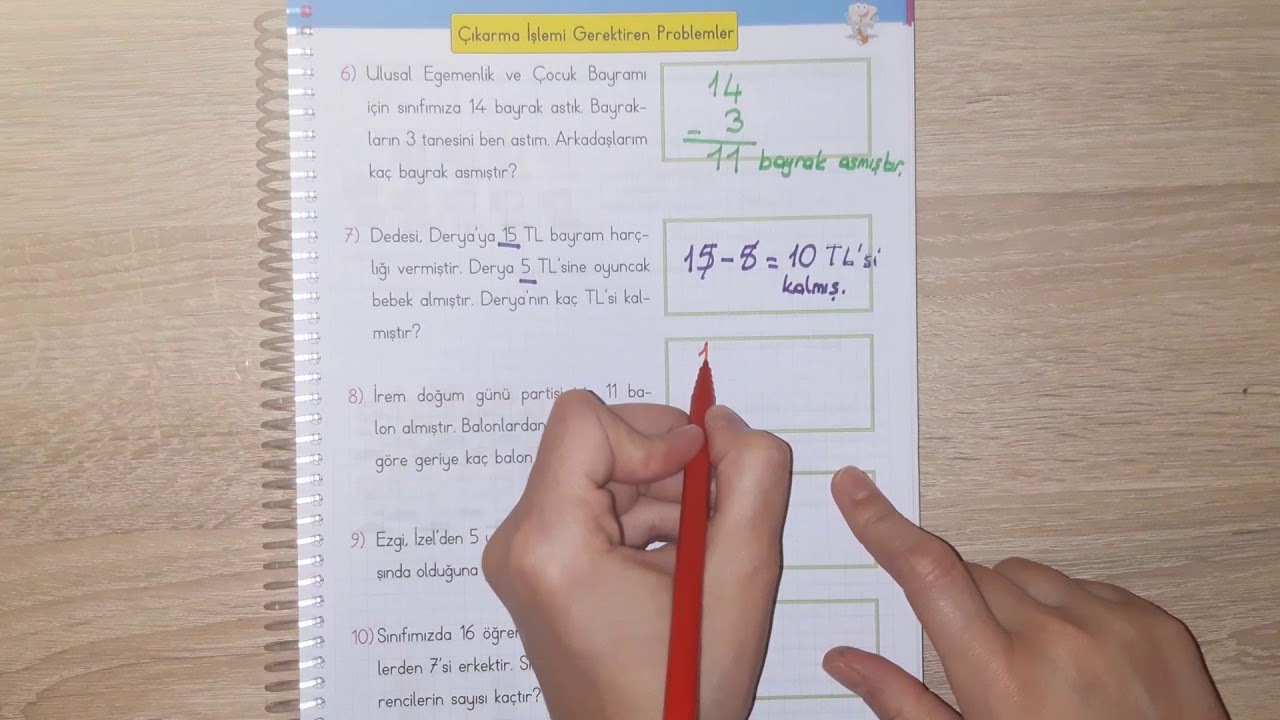 Çıkarma İşlemi Gerektiren Problemler
6) Ulusal Egemenlik ve Çocuk Bayramı
için sınıfımıza 14 bayrak astık. Bayrak-
ların 3 tanesini ben astım. Arkadaşlarım
kaç bayrak asmıştır?
14
- 3
11 bayrak asmıştır.
7) Dedesi, Derya'ya 15 TL bayram harç-
lığı vermiştir. Derya 5 TL'sine oyuncak
bebek almıştır. Derya'nın kaç TL'si kal-
mıştır?
15 - 5 = 10 TL'si
kalmış.
8) İrem doğum günü 11 ba-
lon almıştır. Balonlardan
göre geriye kaç balon
1
9) Ezgi, İzel'den 5
şında olduğuna
10) Sınıfımızda 16
lerden 7'si erkektir.
rencilerin sayısı kaçtır?